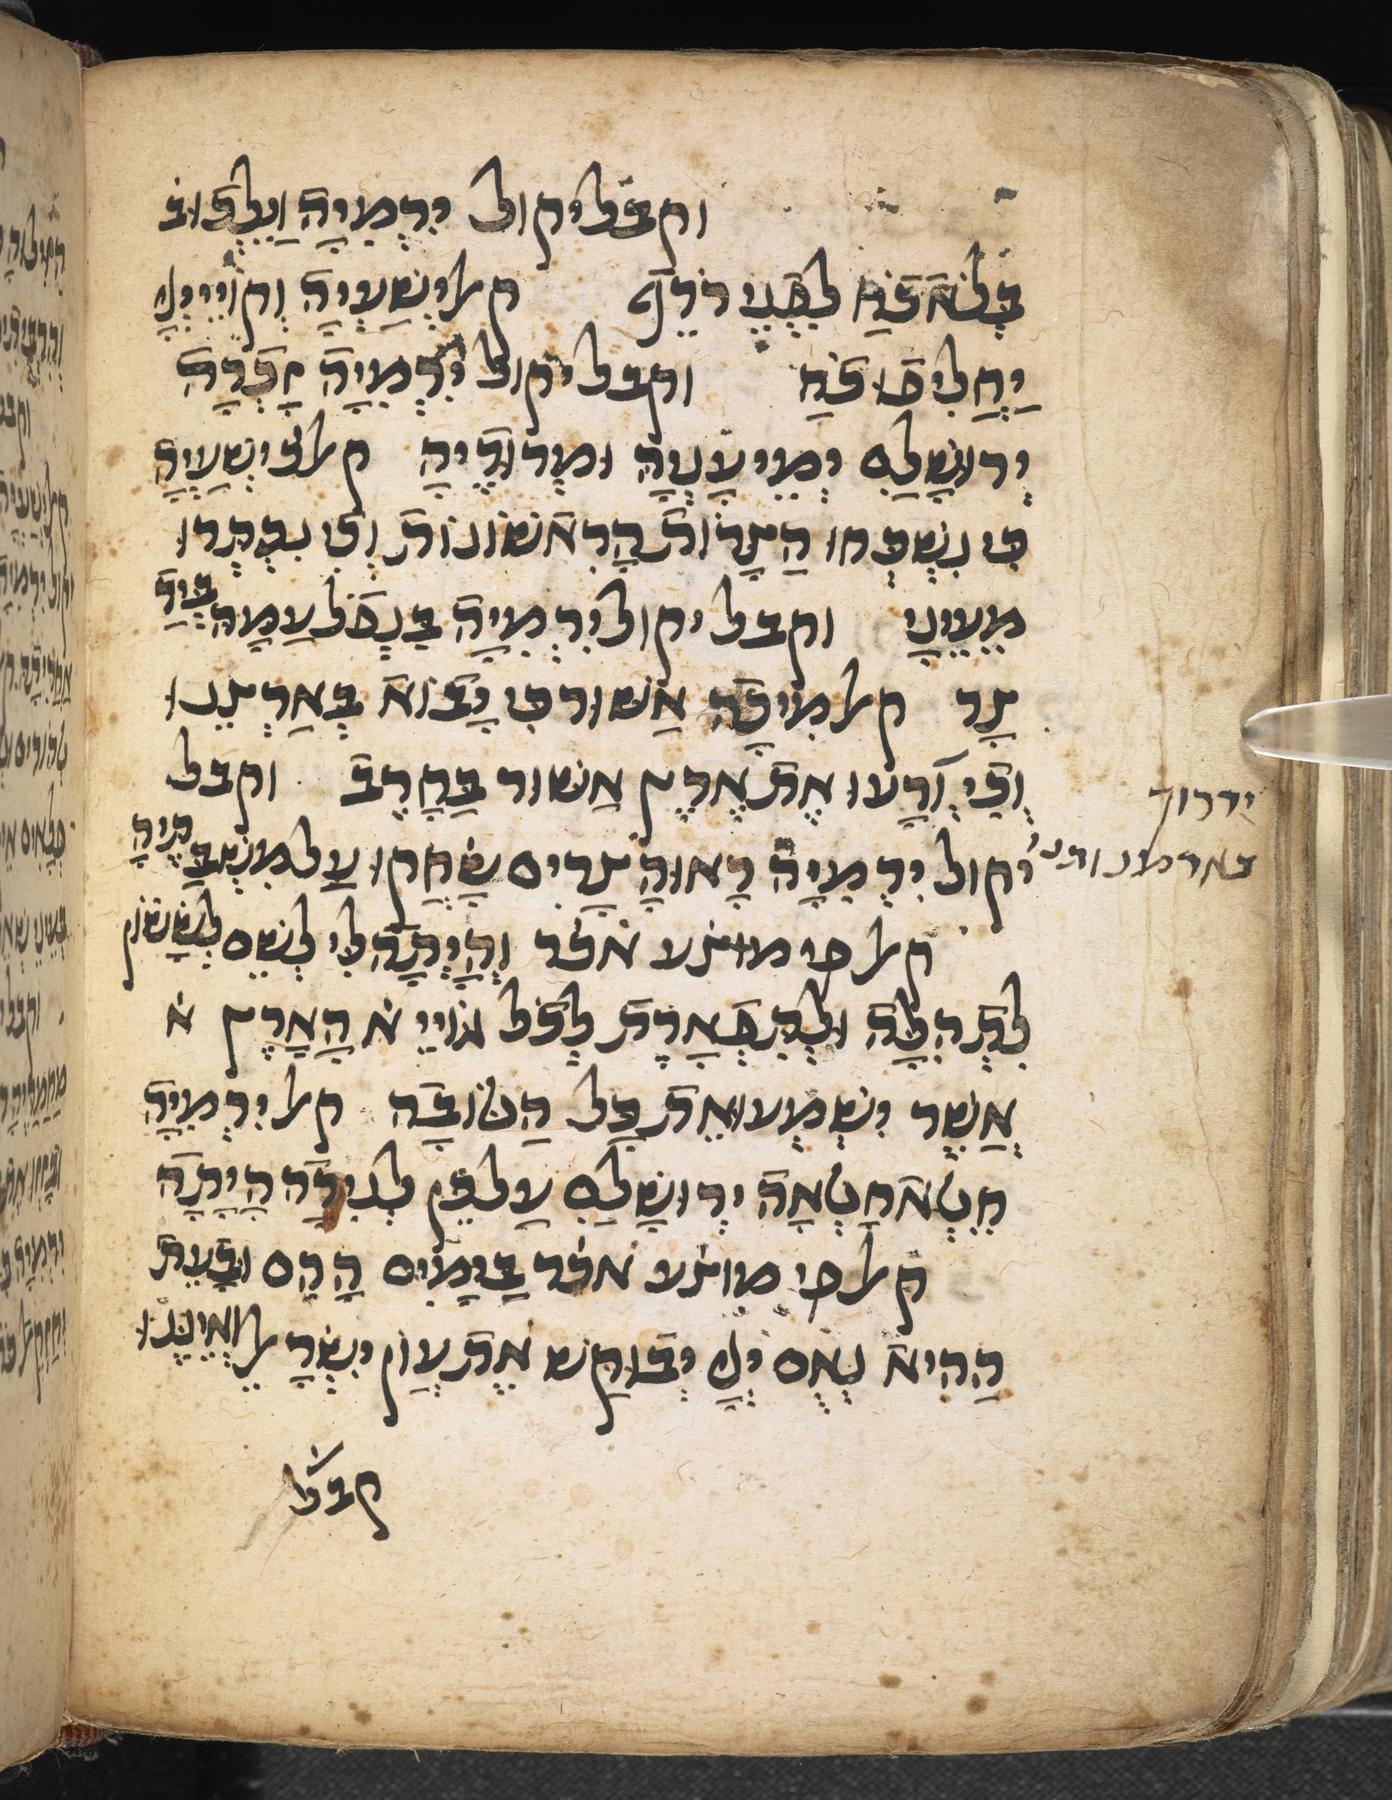 וקבל יקול יִרְמִיָה וַיֵלְכוּ בְ
בְלֹא כֹחַ לִפְנֵי רֹדֵף קאל יְשַׁעְיָה וְקוֹיֵי יְיָ
יַחֲלִיפוּ כֹחַ וקבל יקול יִרְמִיָה זָכְרָה
יְרוּשָׁלִַם יְמֵי עָנְיָה וּמְרוּדֶיהָ קאל ישְׁעַיָה
כִּי נִשְׁכְּחוּ הַצָרוֹת הָרִאשׁוֹנוֹת וְכִי נִסְתְּרוּ
מֵעֵינָי וקבל יקול יִרְמִיָה בִּנְפֹל עַמָהּ בְּיַד
צָר קאל מִיכָה אַשׁוּר כִּי יָבוֹא בְאַרְצֵנוּ
וְכִי וְרָעוּ אֶת אֶרֶץ אַשׁוּר בַּחֶרֶב וקבל
ידרוך
בארמנותינו
יקול יִרְמִיָה רָאוּהָ צָרִים שָׂחֲקוּ עַל מִשְׁבַּתֶּיהָ
קאל פי מוצׄע אכׄר וְהָיְתָה לִּי לְשֵׁם לְשָׂשׂוֹן
לִתְהִלָּה וּלְתִפְאֶרֶת לְכֹל גּוֹיֵי הָאָרֶץ א
אֲשֶׁר יִשְׁמְעוּ אֶת כָּל הַטוֹבָה קאל יִרְמִיָה
חֵטְא חָטְאָה יְרוּשָׁלִַם עַל כֵּן לְנִידָה הָיָתָה
קאל פי מוצׄע אכׄר בַּיָמִים הָהֵם וּבָעֵת
הַהִיא נְאֻם יְיָ יְבוּקַשׁ אֶת עֲוֹן יִשְׂרָאֵל וְאֵינֶנּוּ